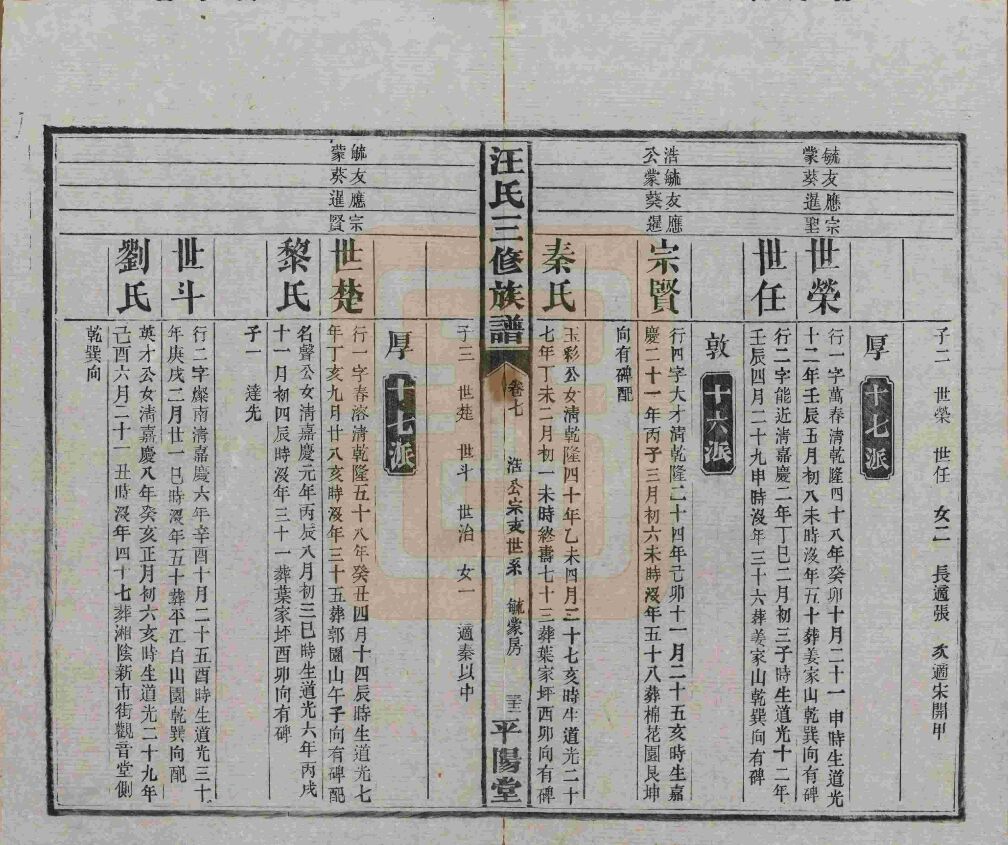 子二 世榮 世任 女二 長適張 次適宋開甲
厚 十七派
毓友應宗
蒙葵暹聖
世榮
行一字萬春清乾隆四十八年癸卯十月二十一申時生道光
十二年壬辰五月初八未時沒年五十葬姜家山乾巽向有碑
世任
行二字能近清嘉慶二年丁巳二月初三子時生道光十二年
壬辰四月二十九申時沒年三十六葬姜家山乾巽向有碑
敦 十六派
浩毓友應
公蒙葵暹
宗賢
行四字大才清乾隆二十四年己卯十一月二十五亥時生嘉
慶二十一年丙子三月初六未時沒年五十八葬棉花園艮坤
向有碑配
秦氏
玉彩公女清乾隆四十年乙未四月二十七亥時生道光二十
七年丁未二月初一未時終壽七十三葬葉家坪酉卯向有碑
汪氏三修族譜 卷七 浩公宗支世系 毓蒙房 平陽堂
子三 世楚 世斗 世治 女一 適秦以中
厚 十七派
毓友應宗
蒙葵暹賢
世楚
行一字春溶清乾隆五十八年癸丑四月十四辰時生道光七
年丁亥九月廿八亥時沒年三十五葬郭園山午子向有碑配
黎氏
名聲公女清嘉慶元年丙辰八月初三巳時生道光六年丙戌
十一月初四辰時沒年三十一葬葉家坪酉卯向有碑
子一 達先
世斗
行二字燦南清嘉慶六年辛酉十月二十五酉時生道光三十
年庚戌二月廿一巳時沒年五十葬平江白山園乾巽向配
劉氏
英才公女清嘉慶八年癸亥正月初六亥時生道光二十九年
己酉六月二十一丑時沒年四十七葬湘陰新市街觀音堂側
乾巽向